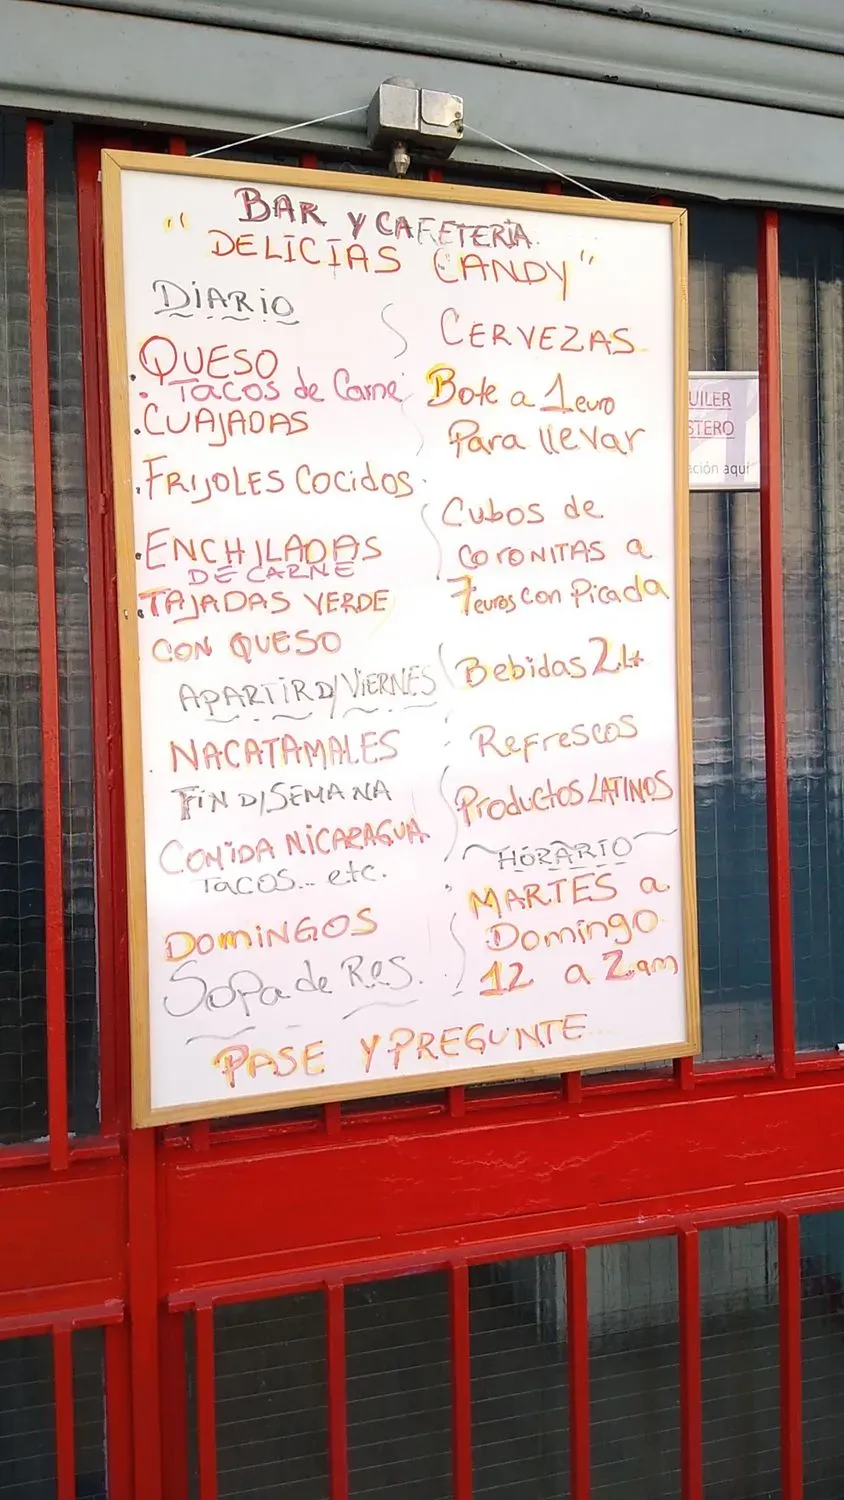 BAR Y CAFETERÍA
"DELICIAS CANDY"
DIARIO
QUESO
TACOS de Carne
CUAJADAS
FRIJOLES COCIDOS
ENCHILADAS
DE CARNE
TAJADAS VERDE
CON QUESO
APARTIR D/VIERNES
NACATAMALES
FIN D/SEMANA
COMIDA NICARAGUA
TACOS... etc.
DOMINGOS
SOPA de RES.
CERVEZAS
Bote a 1 euro
Para llevar
Cubos de
CORONITAS a
7 euros con Picada
Bebidas 2L
Refrescos
Productos LATINOS
HORARIO
MARTES a
Domingo
12 a 2 am
PASE Y PREGUNTE
UILER
STERO
ación aquí